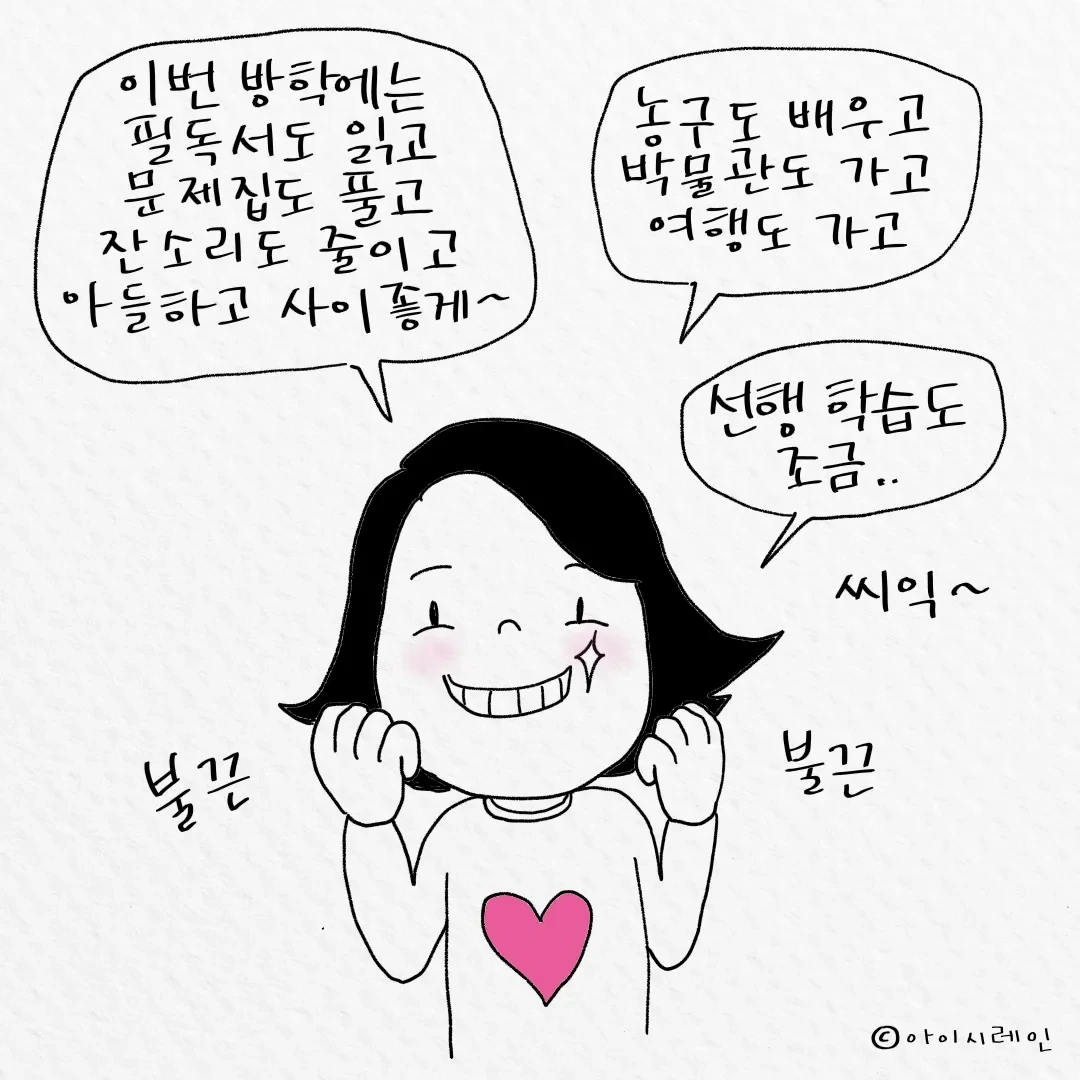 이번 방학에는
필독서도 읽고
문제집도 풀고
잔소리도 줄이고
아들하고 사이좋게~
농구도 배우고
박물관도 가고
여행도 가고
선행 학습도
조금..
씨익~
불끈
불끈
©아이시레인